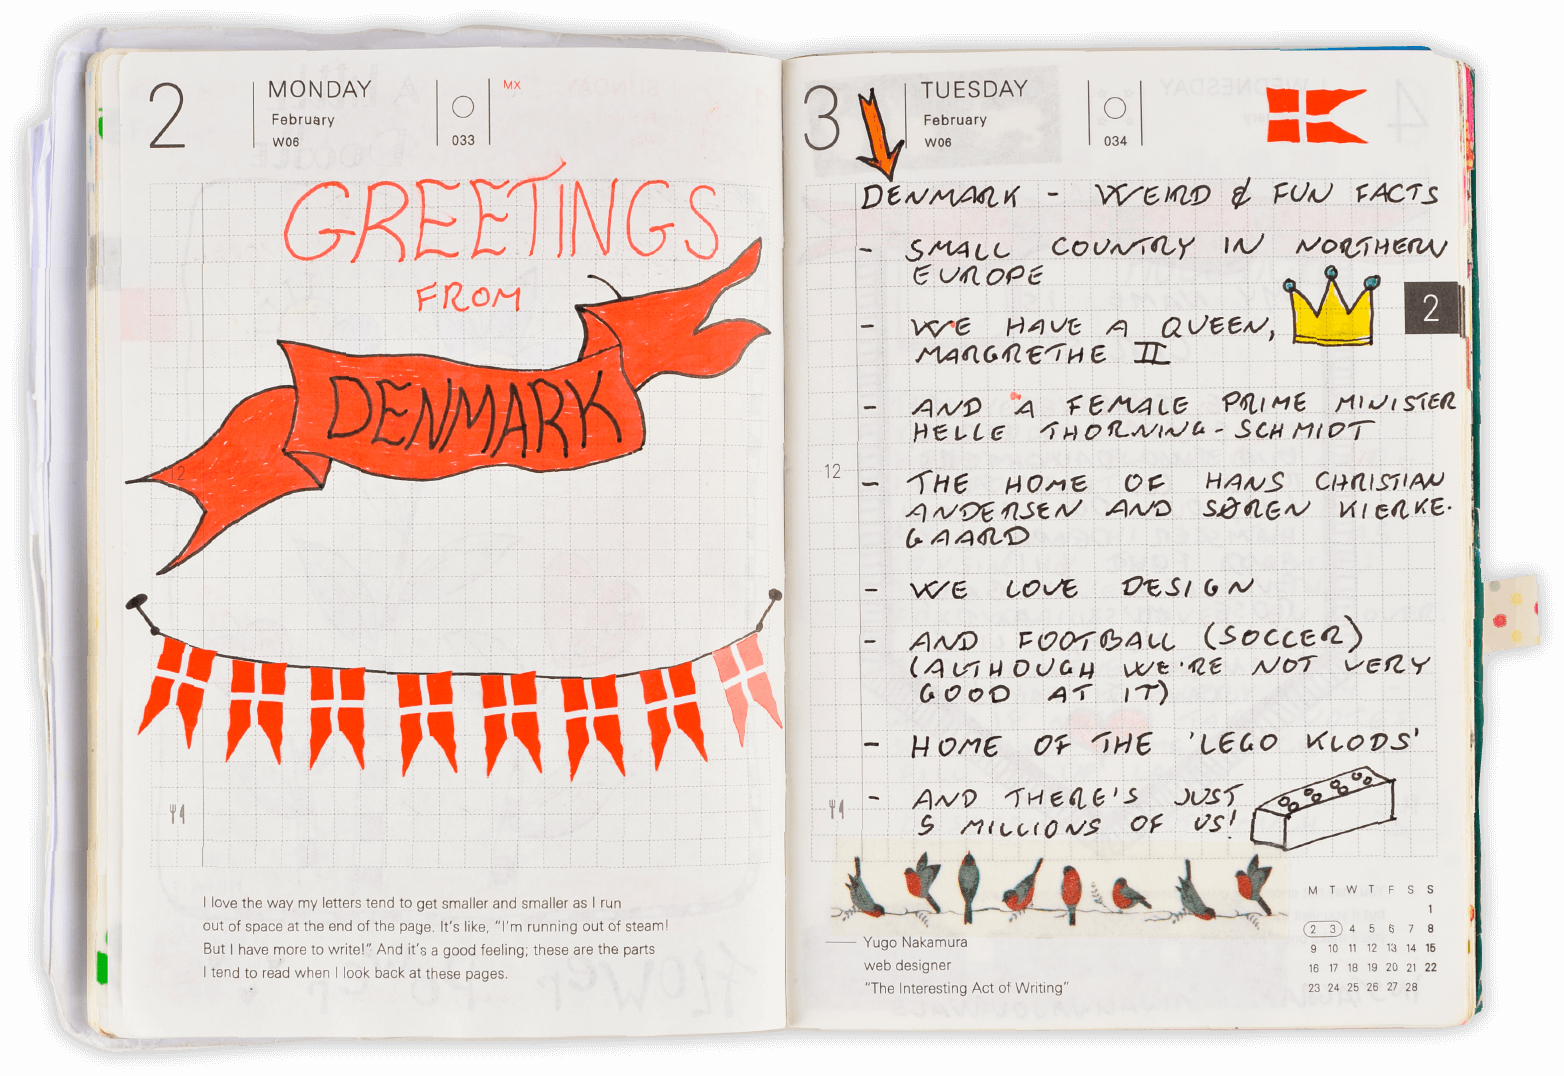 2
MONDAY
February
W06
033
MX
GREETINGS
FROM
DENMARK
12
I love the way my letters tend to get smaller and smaller as I run
out of space at the end of the page. It's like, "I'm running out of steam!
But I have more to write!" And it's a good feeling; these are the parts
I tend to read when I look back at these pages.
3
TUESDAY
February
W06
034
DENMARK - WEIRD & FUN FACTS
- SMALL COUNTRY IN NORTHERN
EUROPE
- WE HAVE A QUEEN,
MARGRETHE II
2
- AND A FEMALE PRIME MINISTER
HELLE THORNING-SCHMIDT
12
- THE HOME OF HANS CHRISTIAN
ANDERSEN AND SØREN KIERKE-
GAARD
- WE LOVE DESIGN
- AND FOOTBALL (SOCCER)
(ALTHOUGH WE'RE NOT VERY
GOOD AT IT)
- HOME OF THE 'LEGO KLODS'
- AND THERE'S JUST
5 MILLIONS OF US!
Yugo Nakamura
web designer
"The Interesting Act of Writing"
M T W T F S S
1
2 3 4 5 6 7 8
9 10 11 12 13 14 15
16 17 18 19 20 21 22
23 24 25 26 27 28